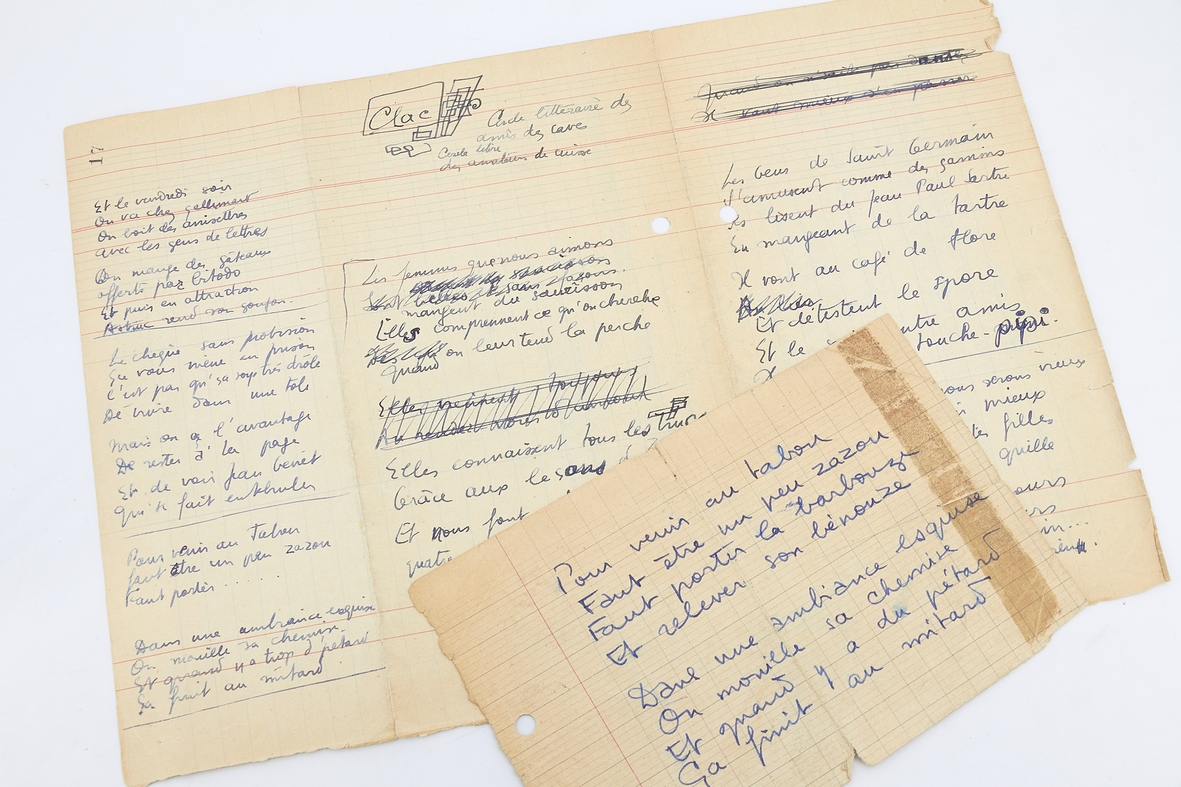 17
Et le vendredi soir
On va chez gallimard
On boit des anisettes
avec les gens de lettres
On mange des gateaux
offerts par bitodo
Et puis en attraction
Astruc rend son goujon.
Le chèque sans provision
Ça vous mène en prison
C'est pas qu'ça soye très drôle
De vivre dans une tôle
Mais on a l'avantage
De rester à la page
Et de voir jean benêt
Qui s'fait entuber
Pour venir au Tabou
faut être un peu zazou
Faut porter ......
Dans une ambiance exquise
On mouille sa chemise.
Et quand y a trop d'pétard
Ça finit au mitard
Clac
Cercle littéraire des
amis des caves
Cercle libre
des amateurs de cuisse
Les femmes que nous aimons
mangent du saucisson
Elles comprennent ce qu'on cherche
quand on leur tend la perche
Elles connaissent tous les trucs
Grâce aux
Et nous font
quatre
Quand on n'sait pas danser
Il vaut mieux s'en passer
Les gens de Saint Germain
S'amusent comme des gamins
Ils lisent du Jean Paul Sartre
En mangeant de la tartre
Il vont au café de flore
Et détestent le spore
Et le entre amis
touche-pipi.
nous serons vieux
mieux
les filles
quille
Pour venir au tabou
Faut être un peu zazou
Faut porter la barbouze
Et relever son bénouze
Dans une ambiance esquise
On mouille sa chemise
Et quand y a du pétard
Ça finit au mitard